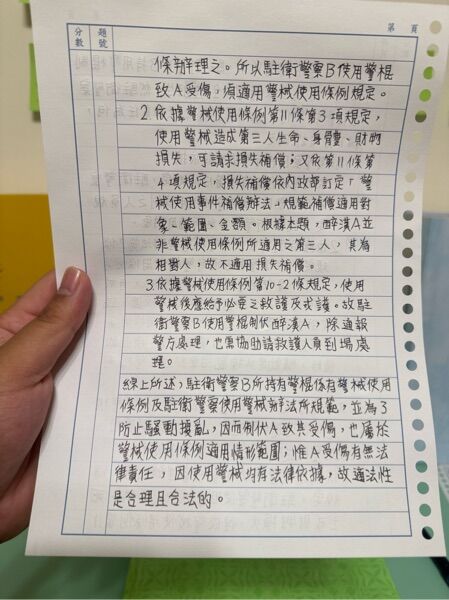 分數 題號 第 頁
條辦理之。所以駐衛警察B使用警棍
致A受傷,須適用警械使用條例規定。
2.依據警械使用條例第11條第3項規定,
使用警械造成第三人生命、身體、財物
損失,可請求損失補償;又依第11條第
4項規定,損失補償依內政部訂定「警
械使用事件補償辦法」規範補償適用對
象、範圍、金額。根據本題,醉漢A並
非警械使用條例所適用之第三人,其為
相對人,故不適用損失補償。
3.依據警械使用條例第10-2條規定,使用
警械後應給予必要之救護及戒護。故駐
衛警察B使用警棍制伏醉漢A,除通報
警方處理,也需協助請救護人員到場處
理。
綜上所述,駐衛警察B所持有警棍係有警械使用
條例及駐衛警察使用警械辦法所規範,並為了
防止騷動擾亂,因而制伏A致其受傷,也屬於
警械使用條例適用情形範圍;惟A受傷有無法
律責任,因使用警械均有法律依據,故適法性
是合理且合法的。